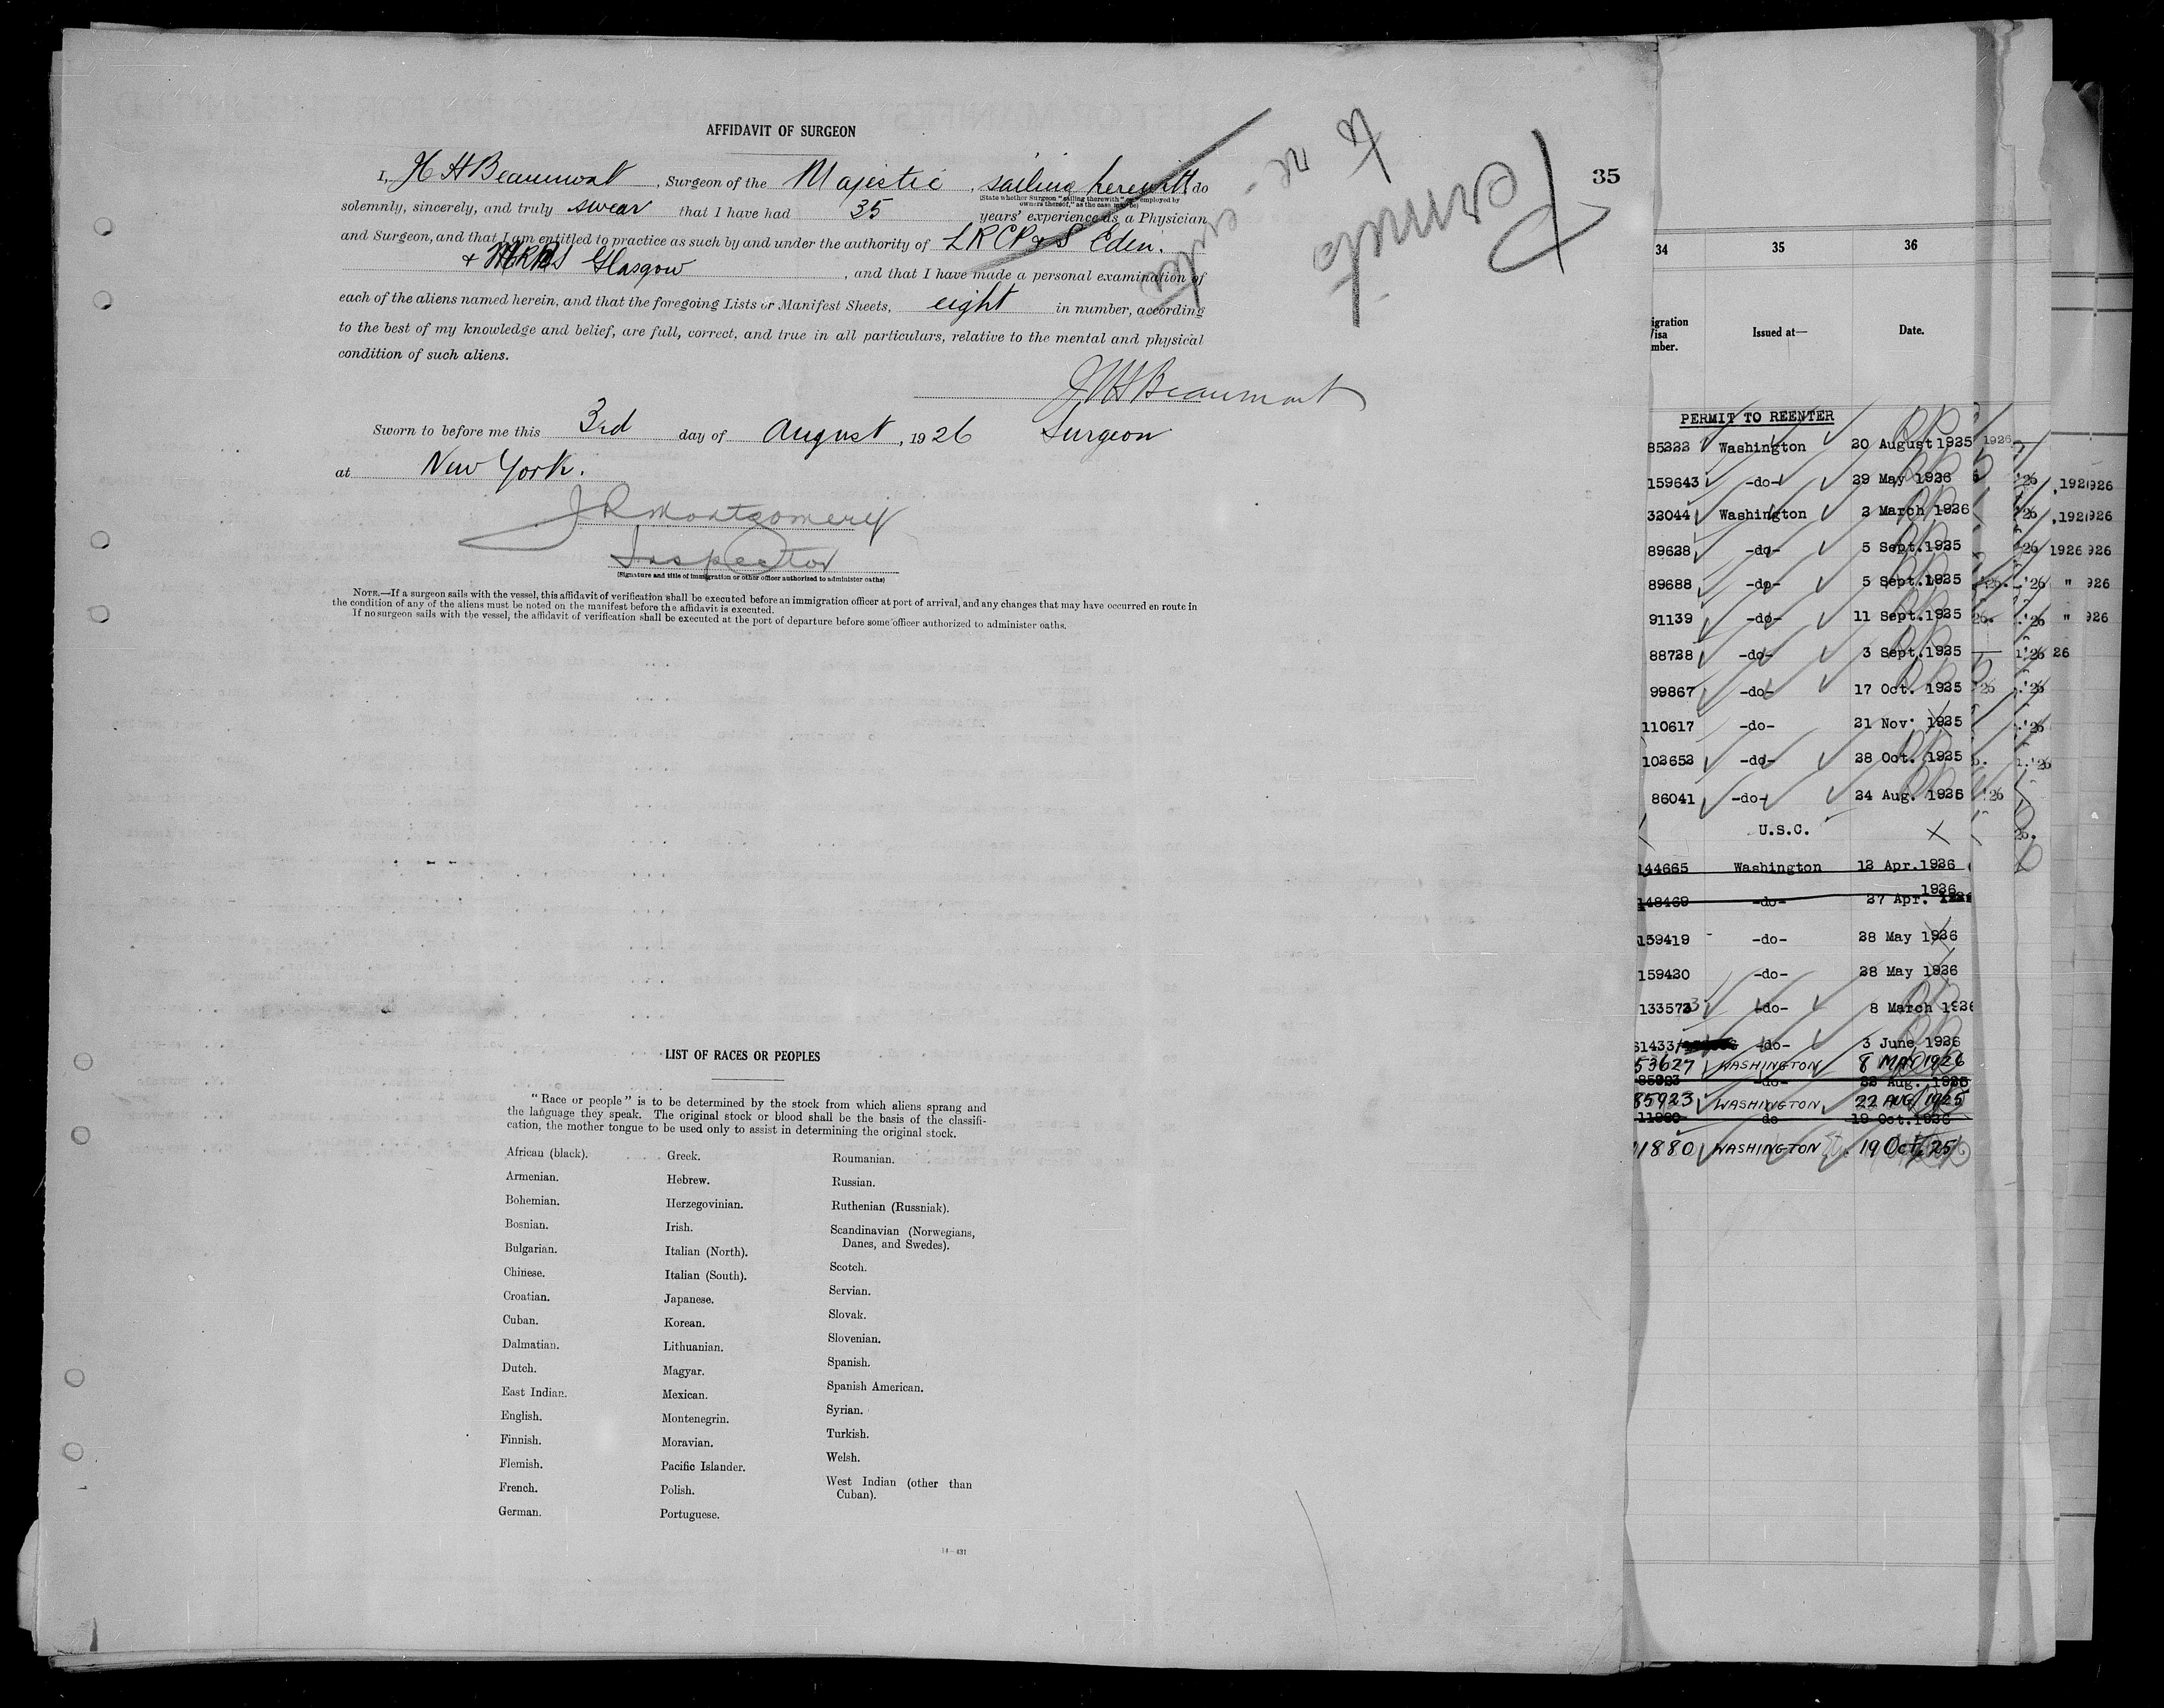 AFFIDAVIT OF SURGEON
I, H H Beaumont, Surgeon of the Majestic, sailing herewith do
(State whether Surgeon "sailing therewith" or "employed by
owners thereof," as the case may be)
solemnly, sincerely, and truly swear that I have had 35 years' experience as a Physician
and Surgeon, and that I am entitled to practice as such by and under the authority of L R C P & S Edin.
+ Glasgow, and that I have made a personal examination of
each of the aliens named herein, and that the foregoing Lists or Manifest Sheets, eight in number, according
to the best of my knowledge and belief, are full, correct, and true in all particulars, relative to the mental and physical
condition of such aliens.
Beaumont
Sworn to before me this 3rd day of August, 1926 Surgeon
at New York.
J R Montgomery
Inspector
(Signature and title of immigration or other officer authorized to administer oaths)
NOTE.—If a surgeon sails with the vessel, this affidavit of verification shall be executed before an immigration officer at port of arrival, and any changes that may have occurred en route in
the condition of any of the aliens must be noted on the manifest before the affidavit is executed.
If no surgeon sails with the vessel, the affidavit of verification shall be executed at the port of departure before some officer authorized to administer oaths.
Permits
to re-enter
35
LIST OF RACES OR PEOPLES
"Race or people" is to be determined by the stock from which aliens sprang and
the language they speak. The original stock or blood shall be the basis of the classifi-
cation, the mother tongue to be used only to assist in determining the original stock.
African (black).
Armenian.
Bohemian.
Bosnian.
Bulgarian.
Chinese.
Croatian.
Cuban.
Dalmatian.
Dutch.
East Indian.
English.
Finnish.
Flemish.
French.
German.
Greek.
Hebrew.
Herzegovinian.
Irish.
Italian (North).
Italian (South).
Japanese.
Korean.
Lithuanian.
Magyar.
Mexican.
Montenegrin.
Moravian.
Pacific Islander.
Polish.
Portuguese.
Roumanian.
Russian.
Ruthenian (Russniak).
Scandinavian (Norwegians,
Danes, and Swedes).
Scotch.
Servian.
Slovak.
Slovenian.
Spanish.
Spanish American.
Syrian.
Turkish.
Welsh.
West Indian (other than
Cuban).
14—431
34 35 36
igration
Visa
mber.
Issued at—
Date.
PERMIT TO REENTER
85222 Washington 20 August 1925
159643 -do- 29 May 1926
32044 Washington 2 March 1926
89628 -do- 5 Sept.1925
89688 -do- 5 Sept.1925
91139 -do- 11 Sept.1925
88728 -do- 3 Sept.1925
99867 -do- 17 Oct. 1925
110617 -do- 21 Nov. 1925
102652 -do- 28 Oct. 1925
86041 -do- 24 Aug. 1925
U.S.C.
144665 Washington 12 Apr.1926
148469 -do- 27 Apr. 1926
159419 -do- 28 May 1926
159420 -do- 28 May 1926
133573 -do- 8 March 1926
61433 -do- 3 June 1926
53627 WASHINGTON 8 MAY 1926
85923 -do- 22 Aug. 1925
85923 WASHINGTON 22 AUG 1925
11880 do 19 Oct.1926
11880 WASHINGTON 19 Oct. 25